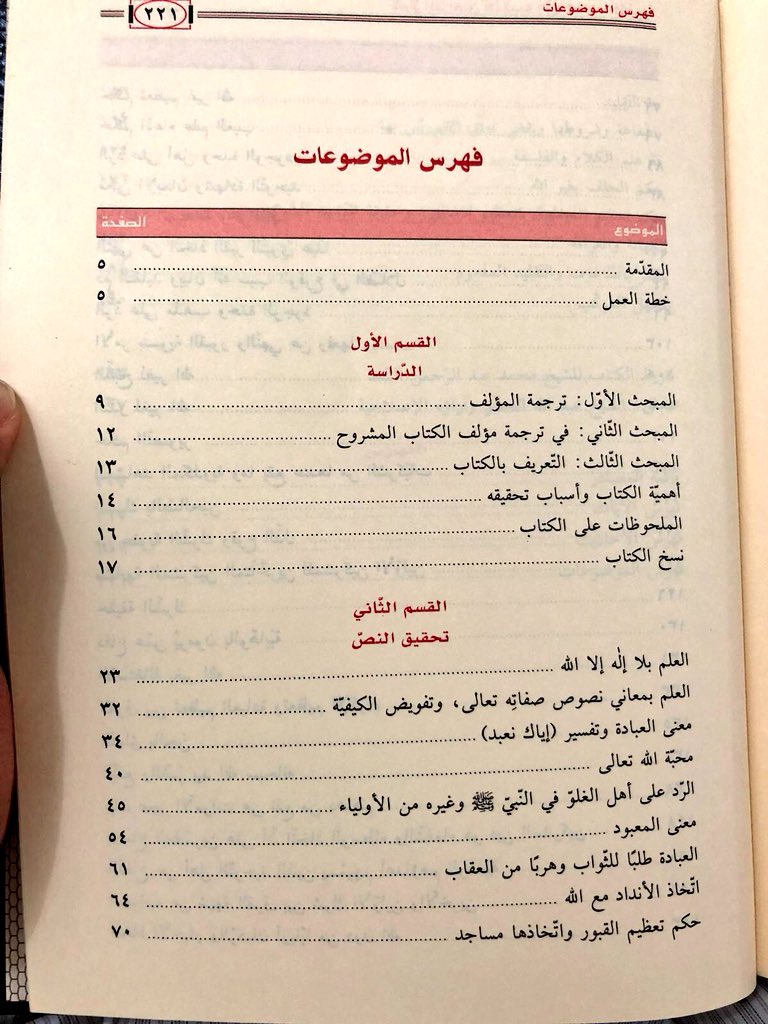 فهرس الموضوعات ٢٢١
فهرس الموضوعات
الموضوع الصفحة
المقدّمة ........ ٥
خطة العمل ........ ٥
القسم الأول
الدّراسة
المبحث الأوّل: ترجمة المؤلف ........ ٩
المبحث الثّاني: في ترجمة مؤلف الكتاب المشروح ........ ١٢
المبحث الثّالث: التّعريف بالكتاب ........ ١٣
أهميّة الكتاب وأسباب تحقيقه ........ ١٤
الملحوظات على الكتاب ........ ١٦
نسخ الكتاب ........ ١٧
القسم الثّاني
تحقيق النصّ
العلم بلا إلٰه إلا الله ........ ٢٣
العلم بمعاني نصوص صفاتِه تعالى، وتفويض الكيفيّة ........ ٣٢
معنى العبادة وتفسير (إياك نعبد) ........ ٣٤
محبّة الله تعالى ........ ٤٠
الرّد على أهل الغلوّ في النّبيّ ﷺ وغيره من الأولياء ........ ٤٥
معنى المعبود ........ ٥٤
العبادة طلبًا للثّواب وهربًا من العقاب ........ ٦١
اتّخاذ الأنداد مع الله ........ ٦٤
حكم تعظيم القبور واتّخاذها مساجد ........ ٧٠